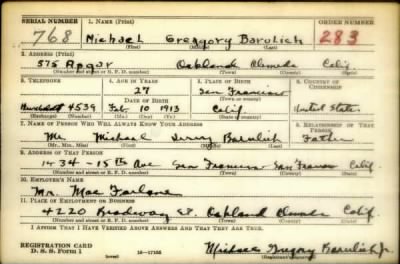 SERIAL NUMBER 1. NAME (Print) ORDER NUMBER
768 Michael Gregory Barulich 283
(First) (Middle) (Last)
2. ADDRESS (Print)
575 Apgar Oakland Alameda Calif.
(Number and street or R. F. D. number) (Town) (County) (State)
3. TELEPHONE 4. AGE IN YEARS 5. PLACE OF BIRTH 6. COUNTRY OF CITIZENSHIP
27 San Francisco
DATE OF BIRTH (Town or county)
4539 Feb 10 1913 Calif United States
(Exchange) (Number) (Mo.) (Day) (Yr.) (State or country)
7. NAME OF PERSON WHO WILL ALWAYS KNOW YOUR ADDRESS 8. RELATIONSHIP OF THAT PERSON
Mr. Michael Barulich Father
(Mr., Mrs., Miss) (First) (Middle) (Last)
9. ADDRESS OF THAT PERSON
1434 - 15th Ave San Francisco San Francisco Calif.
(Number and street or R. F. D. number) (Town) (County) (State)
10. EMPLOYER'S NAME
Mr. Mac Farlane
11. PLACE OF EMPLOYMENT OR BUSINESS
4220 Broadway St. Oakland Alameda Calif.
(Number and street or R. F. D. number) (Town) (County) (State)
I AFFIRM THAT I HAVE VERIFIED ABOVE ANSWERS AND THAT THEY ARE TRUE.
REGISTRATION CARD
D. S. S. Form 1 16-17105
(over) Michael Gregory Barulich Jr.
(Registrant's signature)